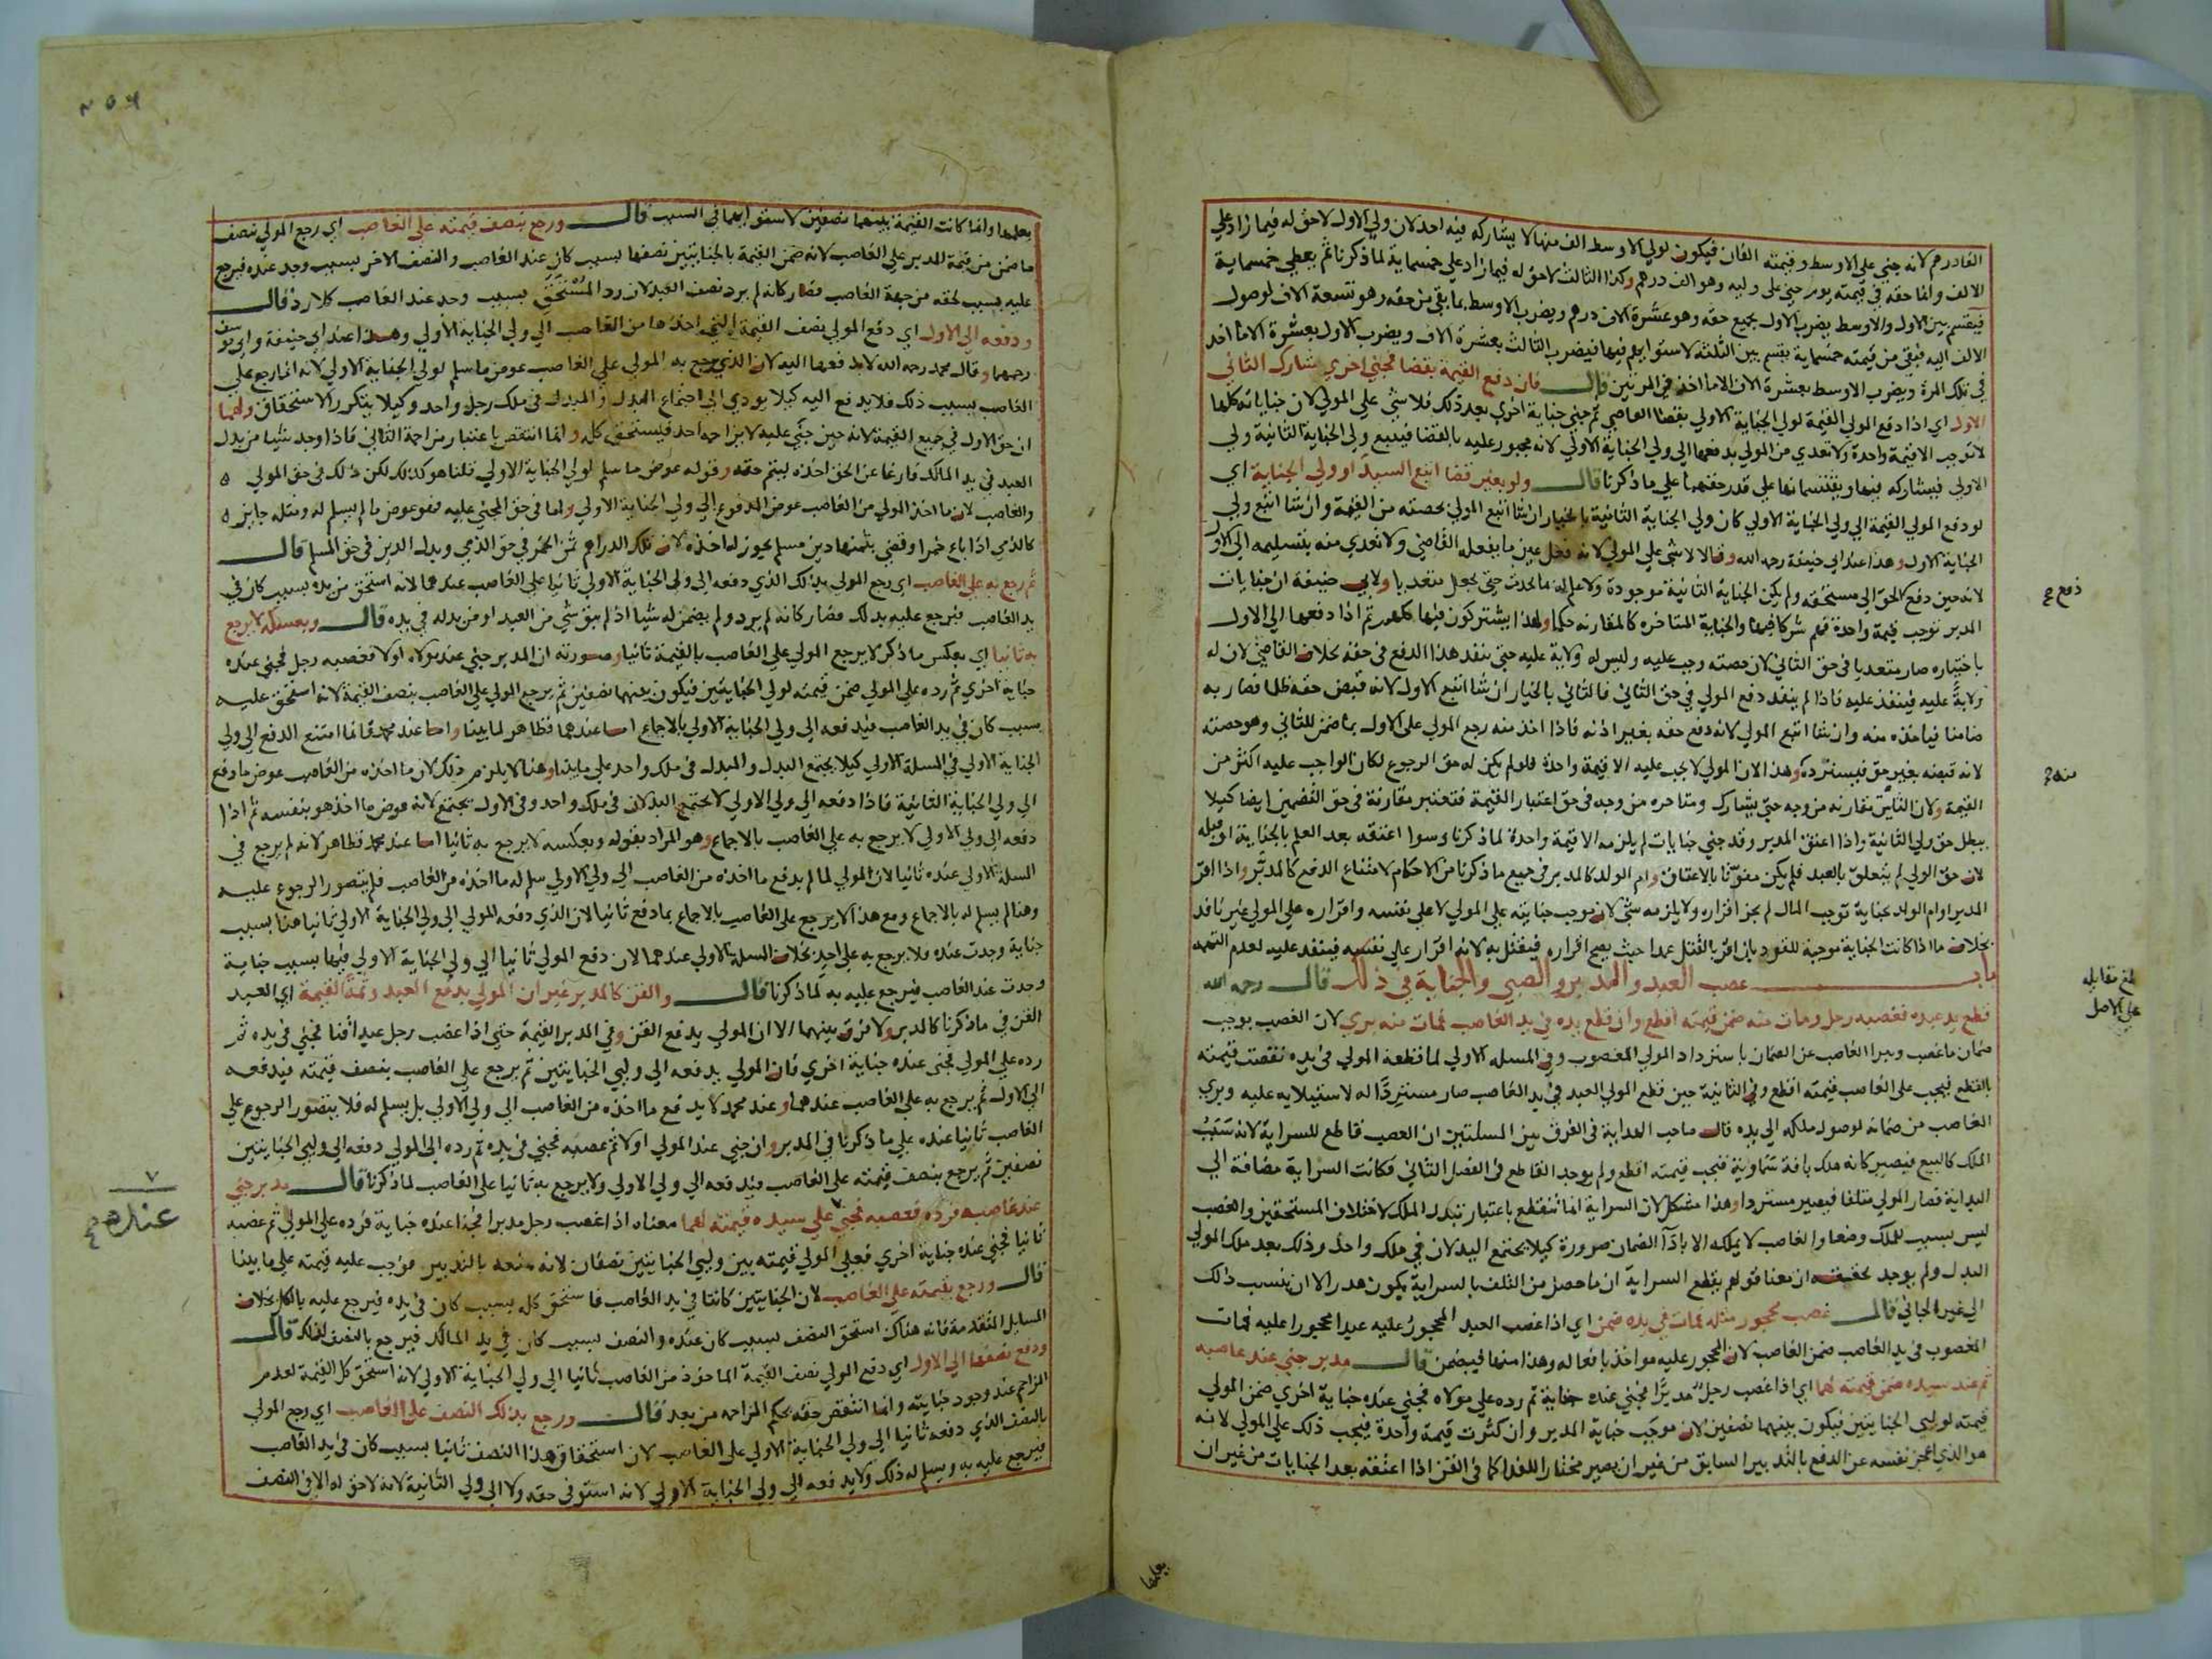 الفا درهم لانه جني على الاوسط وقيمته الفان فيكون لولي الاوسط الف منها لا يشاركه فيه احد لان ولي الاول لا حق له فيما زاد على
الالف وانما حقه في قيمته يوم جني على وليه وهو الف درهم وكذا الثالث لا حق له فيما زاد على خمسماية لما ذكرنا ثم يعطي خمسماية
فيقسم بين الاول والاوسط يضرب الاول بجميع حقه وهو عشرة الاف درهم ويضرب الاوسط بما بقي من حقه وهو تسعة الاف لوصول
الالف اليه فبقي من قيمته خمسماية يقسم بين الثلثة لاستوايهم فيها فيضرب الثالث بعشرة الاف ويضرب الاول بعشرة الا ما اخذ
في تلك المرة ويضرب الاوسط بعشرة الاف الا ما اخذ في المرتين قال فان دفع القيمة بقضا فجني اخري شارك الثاني
الاول اي اذا دفع المولي القيمة لولي الجناية الاولي بقضا القاضي ثم جني جناية اخري بعد ذلك فلا شي على المولي لان جناياته كلها
لا توجب الا قيمة واحدة ولا تعدي من المولي بدفعها الى ولي الجناية الاولي لانه مجبور عليه بالقضا فيتبع ولي الجناية الثانية ولي
الاولي فيشاركه فيها ويقتسمانها على قدر حقهما على ما ذكرنا قال ولو بغير قضا اتبع السيد او ولي الجناية اي
لو دفع المولي القيمة الى ولي الجناية الاولي كان ولي الجناية الثانية بالخيار ان شا اتبع المولي بحصته من القيمة وان شا اتبع ولي
الجناية الاولي وهذا عند ابي حنيفة رحمه الله وقالا لا شي على المولي لانه فعل عين ما يفعله القاضي ولا تعدي منه بتسليمه الى الاول
لانه حين دفع دفع الحق الى مستحقه ولم يكن الجناية الثانية موجودة ولا علم له بما يحدث حتي يجعل متعديا ولابي حنيفة ان جنايات
المدبر توجب قيمة واحدة فهم شركا فيها والجناية المتاخرة كالمقارنة حكما ولهذا يشتركون فيها كلهم ثم اذا دفعها الى الاول
باختياره صار متعديا في حق الثاني لان حصته وجب عليه وليس له ولاية عليه حتي ينفذ هذا الدفع في حقه بخلاف القاضي لان له
ولاية عليه فينفذ عليه فاذا لم ينفذ دفع المولي في حق الثاني فالثاني بالخيار ان شا اتبع الاول لانه قبض حقه ظلما فصار به
ضامنا فياخذه منه وان شا اتبع المولي لانه دفع حقه بغير اذنه فاذا اخذ منه رجع المولي على الاول بما ضمن للثاني وهو حصته
لانه قبضه بغير حق فيسترده وهذا لان المولي لا يجب عليه الا قيمة واحدة فلو لم يكن له حق الرجوع لكان الواجب عليه اكثر من
القيمة ولان الثانية مقارنة من وجه حتي يشارك ومتاخره من وجه في حق اعتبار القيمة فتعتبر مقارنة في حق التضمين ايضا كيلا
يبطل حق ولي الثانية واذا اعتق المدبر وقد جني جنايات لم يلزمه الا قيمة واحدة لما ذكرنا وسوا اعتقه بعد العلم بالجناية او قبله
لان حق الولي لم يتعلق بالعبد فلم يكن مفوتا بالاعتاق وام الولد كالمدبر في جميع ما ذكرنا من الاحكام لامتناع الدفع كالمدبر واذا اقر
المدبر او ام الولد بجناية توجب المال لم يجز اقراره ولا يلزمه شي لان موجب جنايته على المولي لا على نفسه واقراره على المولي غير نافذ
بخلاف ما اذا كانت الجناية موجبة للقود بان اقر بالقتل عمدا حيث يصح اقراره فيقتل به لانه اقرار على نفسه فينفذ عليه لعدم التهمة
باب غصب العبد والمدبر والصبي والجناية في ذلك قال رحمه الله
قطع يد عبده فغصبه رجل ومات منه ضمن قيمته اقطع وان قطع يده في يد الغاصب فمات منه بري لان الغصب يوجب
ضمان ما غصب ويبرا الغاصب عن الضمان باسترداد المولي المغصوب وفي المسلة الاولي لما قطعه المولي في يده نقصت قيمته
بالقطع فيجب على الغاصب قيمته اقطع وفي الثانية حين قطع المولي العبد في يد الغاصب صار مستردا له لاستيلايه عليه وبري
الغاصب من ضمانه لوصول ملكه الى يده قال صاحب الهداية في الفرق بين المسلتين ان الغصب قاطع للسراية لانه سبب
الملك كالبيع فيصير كانه هلك بافة سماوية فتجب قيمته اقطع ولم يوجد القاطع في الفصل الثاني فكانت السراية مضافة الى
البداية فصار المولي متلفا فيصير مستردا وهذا مشكل لان السراية انما تنقطع باعتبار تبدل الملك لاختلاف المستحقين والغصب
ليس بسبب للملك وضعا والغاصب لا يملكه الا باداء الضمان ضرورة كيلا يجتمع البدلان في ملك واحد وذلك بعد ملك المولي
البدل ولم يوجد تحقيقه ان معنا قولهم بقطع السراية ان ما حصل من التلف بالسراية يكون هدرا لا ان ينسب ذلك
الى غير الجاني قال غصب محجور مثله فمات في يده ضمن اي اذا غصب العبد المحجور عليه عبدا محجورا عليه فمات
المغصوب في يد الغاصب ضمن الغاصب لان المحجور عليه مواخذ بافعاله وهذا منها فيضمن قال مدبر جني عند غاصبه
ثم عند سيده ضمن قيمته لهما اي اذا غصب رجل مدبرا فجني عنده جناية ثم رده على مولاه فجني عنده جناية اخري ضمن المولي
قيمته لوليي الجنايتين فيكون بينهما نصفين لان موجب جناية المدبر وان كثرت قيمة واحدة فيجب ذلك على المولي لانه
هو الذي اعجز نفسه عن الدفع بالتدبير السابق من غير ان يصير مختارا للفدا كما في القن اذا اعتقه بعد الجنايات من غير ان
يعلمها
دفع صح
منه صح
بلغ مقابله
على الاصل
يعلمها وانما كانت القيمة بينهما نصفين لاستوايهما في السبب قال ورجع بنصف قيمته على الغاصب اي رجع المولي بنصف
ما ضمن من قيمة المدبر على الغاصب لانه ضمن القيمة بالجنايتين نصفها بسبب كان عند الغاصب والنصف الاخر بسبب وجد عنده فيرجع
عليه بسبب لحقه من جهة الغاصب فصار كانه لم يرد نصف العبد لان رد المستحق بسبب وجد عند الغاصب كلا رد قال
ودفعه الى الاول اي دفع المولي نصف القيمة التي اخذها من الغاصب الى ولي الجناية الاولي وهذا عند ابي حنيفة وابي يوسف
رحمهما وقال محمد رحمه الله لا يدفعها اليه لان الذي يرجع به المولي على الغاصب عوض ما سلم لولي الجناية الاولي لانه انما رجع على
الغاصب بسبب ذلك فلا يدفع اليه كيلا يودي الى اجتماع البدل والمبدل في ملك رجل واحد وكيلا يتكرر الاستحقاق ولهما
ان حق الاول في جميع القيمة لانه حين جني عليه لا يزاحمه احد فيستحق كله وانما انتقص باعتبار مزاحمة الثاني فاذا وجد شيا من بدل
العبد في يد المالك فارغا عن الحق اخذه ليتم حقه وقوله عوض ما سلم لولي الجناية الاولي قلنا هو كذلك لكن ذلك في حق المولي
والغاصب لان ما اخذ المولي من الغاصب عوض المدفوع الى ولي الجناية الاولي واما في حق المجني عليه فهو عوض ما لم يسلم له ومثله جايز
كالذمي اذا باع خمرا وقضي بثمنها دين مسلم يجوز له اخذه لان تلك الدراهم ثمن الخمر في حق الذمي وبدل الدين في حق المسلم قال
ثم رجع به على الغاصب اي رجع المولي بذلك الذي دفعه الى ولي الجناية الاولي ثانيا على الغاصب عندهما لانه استحق من يده بسبب كان في
يد الغاصب فيرجع عليه بذلك فصار كانه لم يرد ولم يضمن له شيا اذ لم يبق شي من العبد او من بدله في يده قال وبعكسه لا يرجع
به ثانيا اي بعكس ما ذكر لا يرجع المولي على الغاصب بالقيمة ثانيا وصورته ان المدبر جني عند مولاه اولا فغصبه رجل فجني عنده
جناية اخري ثم رده على المولي ضمن قيمته لولي الجنايتين فيكون بينهما نصفين ثم يرجع المولي على الغاصب بنصف القيمة لانه استحق عليه
بسبب كان في يد الغاصب فيدفعه الى ولي الجناية الاولي بالاجماع اما عندهما فظاهر لما بينا واما عند محمد فانما امتنع الدفع الى ولي
الجناية الاولي في المسلة الاولي كيلا يجتمع البدل والمبدل في ملك واحد على ما بينا وهنا لا يلزم ذلك لان ما اخذه من الغاصب عوض ما دفع
الى ولي الجناية الثانية فاذا دفعه الى ولي الاولي لا يجتمع البدلان في ملك واحد وفي الاول يجتمع لانه عوض ما اخذ هو بنفسه ثم اذا
دفعه الى ولي الاولي لا يرجع به على الغاصب بالاجماع وهو المراد بقوله وبعكسه لا يرجع به ثانيا اما عند محمد فظاهر لانه لم يرجع في
المسلة الاولي عنده ثانيا لان المولي لما لم يدفع ما اخذه من الغاصب الى ولي الاولي سلم له ما اخذه من الغاصب فلم يتصور الرجوع عليه
وهنا لم يسلم له بالاجماع ومع هذا لا يرجع على الغاصب بالاجماع بما دفع ثانيا لان الذي دفعه المولي الى ولي الجناية الاولي ثانيا هنا بسبب
جناية وجدت عنده فلا يرجع به على احد بخلاف المسلة الاولي عندهما لان دفع المولي ثانيا الى ولي الجناية الاولي فيها بسبب جناية
وجدت عند الغاصب فيرجع عليه به لما ذكرنا قال والقن كالمدبر غير ان المولي يدفع العبد وثمة القيمة اي العبد
القن في ما ذكرنا كالمدبر ولا فرق بينهما الا ان المولي يدفع القن وفي المدبر القيمة حتي اذا غصب رجل عبدا قنا فجني في يده ثم
رده على المولي فجني عنده جناية اخري فان المولي يدفعه الى وليي الجنايتين ثم يرجع على الغاصب بنصف قيمته فيدفعه
الى الاول ثم يرجع به على الغاصب عندهما وعند محمد لا يدفع ما اخذه من الغاصب الى ولي الاولي بل يسلم له فلا يتصور الرجوع على
الغاصب ثانيا عنده على ما ذكرنا في المدبر وان جني عند المولي اولا ثم غصبه فجني في يده ثم رده الى المولي دفعه الى وليي الجنايتين
نصفين ثم يرجع بنصف قيمته على الغاصب فيدفعه الى ولي الاولي ولا يرجع به ثانيا على الغاصب لما ذكرنا قال مدبر جني
عند غاصبه فرده فغصبه فجني على سيده قيمته لهما معناه اذا غصب رجل مدبرا فجني عنده جناية فرده على المولي ثم غصبه
ثانيا فجني عنده جناية اخري فعلى المولي قيمته بين وليي الجنايتين نصفان لانه منعه بالتدبير فوجب عليه قيمته على ما بينا
قال ورجع بقيمته على الغاصب لان الجنايتين كانتا في يد الغاصب فاستحق كله بسبب كان في يده فيرجع عليه بالكل بخلاف
المسايل المتقدمة فانه هناك استحق النصف بسبب كان عنده والنصف بسبب كان في يد المالك فيرجع بالنصف لذلك قال
ودفع نصفها الى الاول اي دفع المولي نصف القيمة الماخوذ من الغاصب ثانيا الى ولي الجناية الاولي لانه استحق كل القيمة لعدم
المزاحم عند وجود جنايته وانما انتقص حقه بحكم المزاحمة من بعد قال ورجع بذلك النصف على الغاصب اي رجع المولي
بالنصف الذي دفعه ثانيا الى ولي الجناية الاولي على الغاصب لان استحقاق هذا النصف ثانيا بسبب كان في يد الغاصب
فيرجع عليه به ويسلم له ذلك ولا يدفعه الى ولي الجناية الاولي لانه استوفي حقه ولا الى ولي الثانية لانه لا حق له الا في النصف
عنده صح